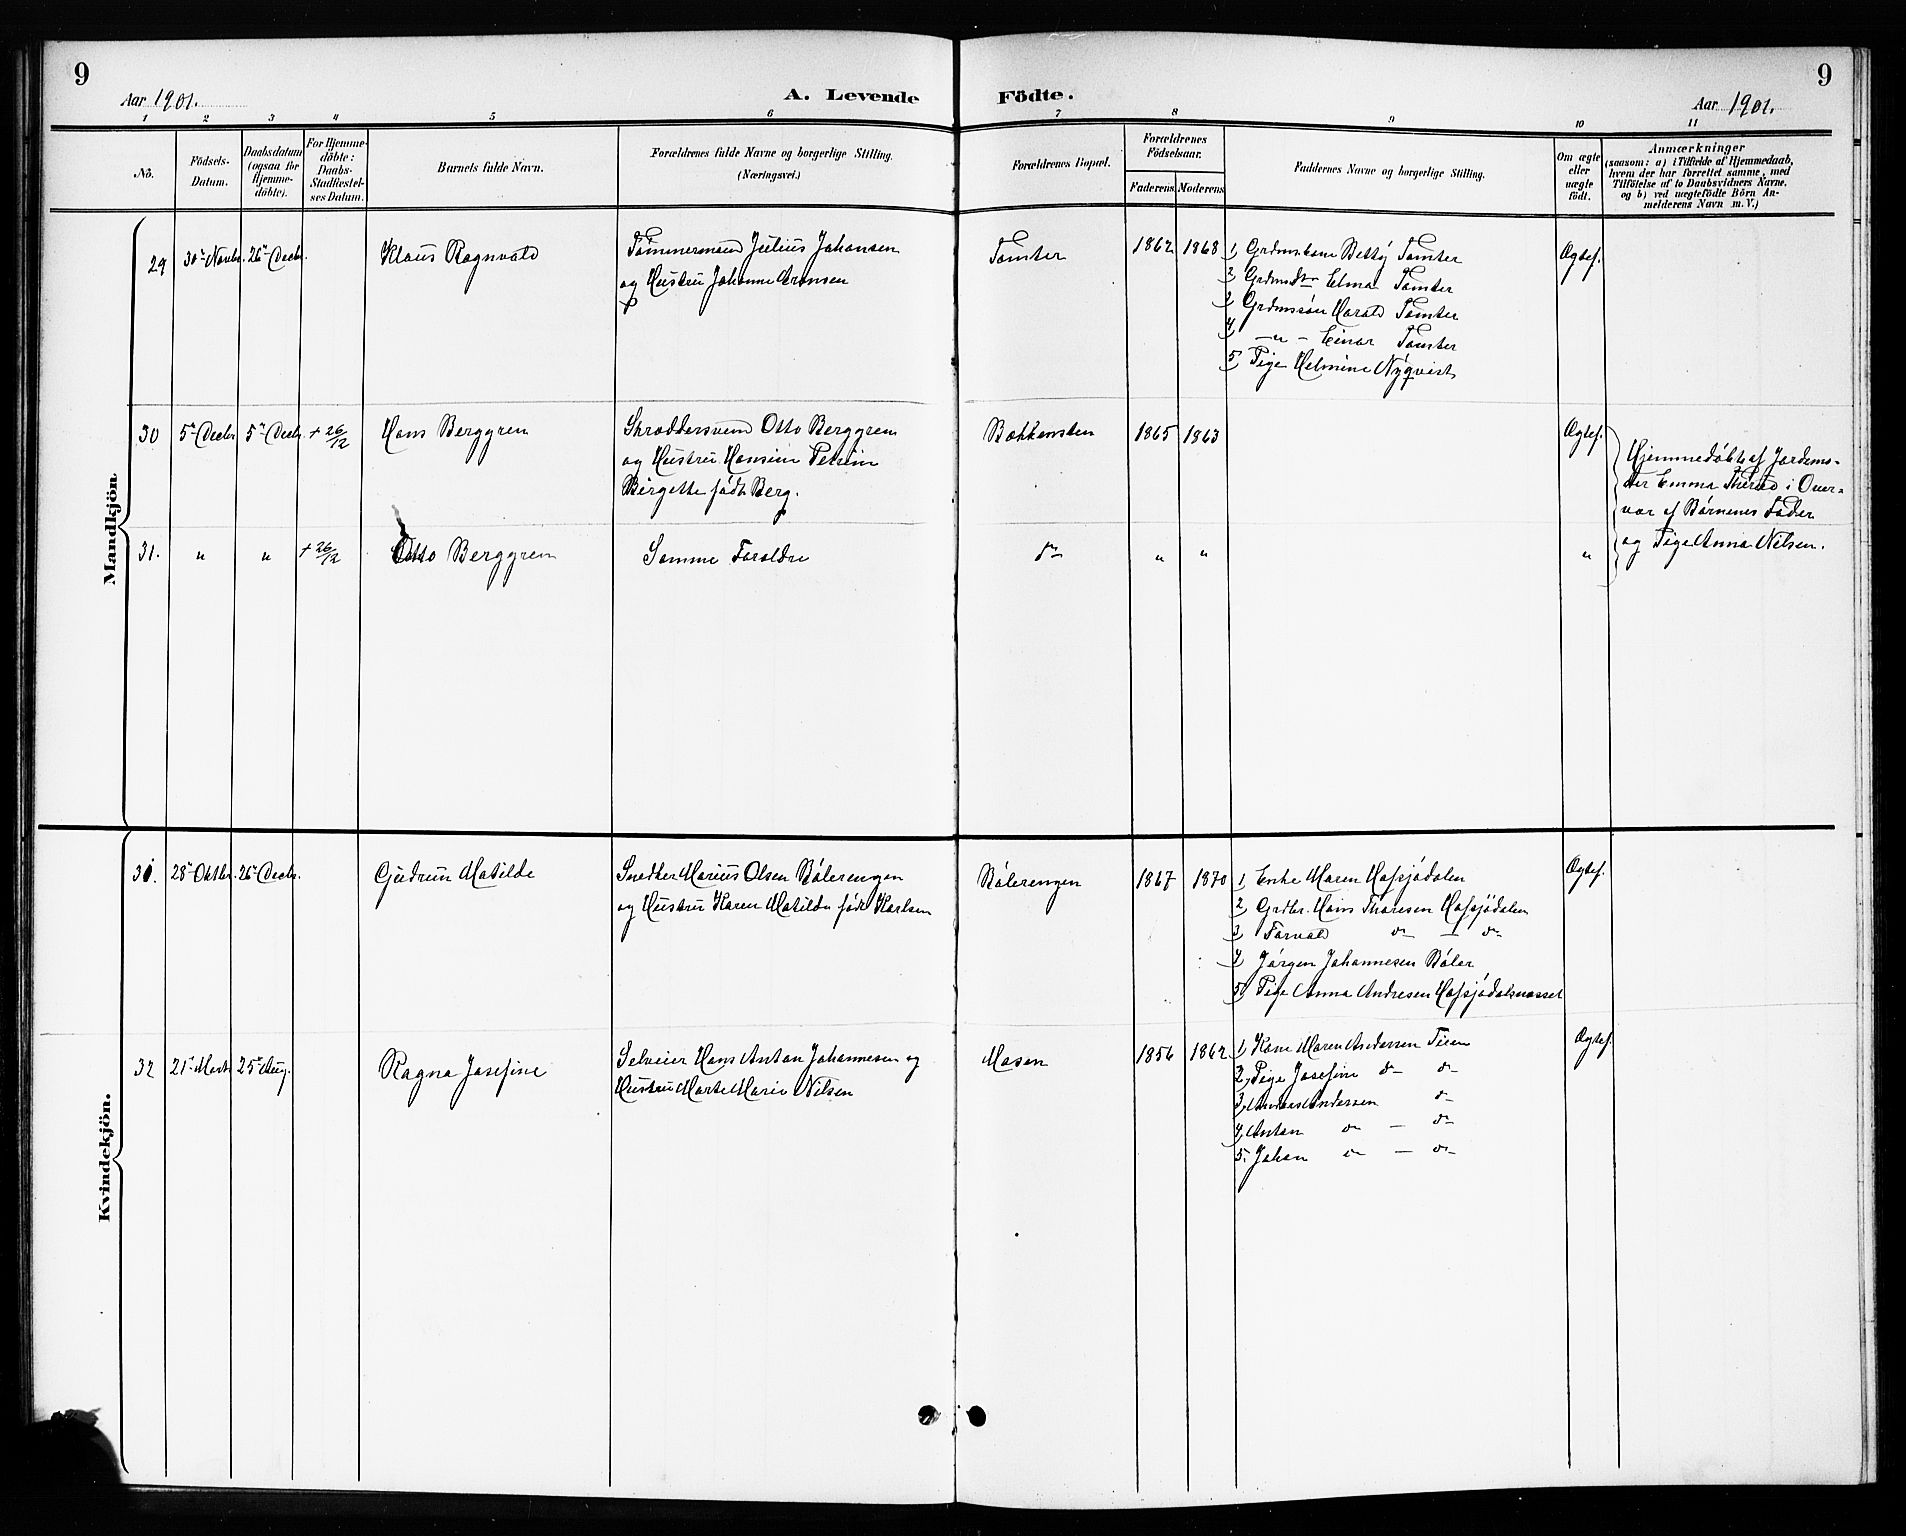 9
Aar 1901.
A. Levende
Födte.
9
Aar 1901.
1 2 3 4 5 6 7 8 9 10 11
Nö.
Födsels-
Datum.
Daabsdatum
(ogsaa for
Hjemme-
döbte).
For Hjemme-
döbte:
Daabs-
Stadfæstel-
ses Datum.
Barnets fulde Navn.
Forældrenes fulde Navne og borgerlige Stilling.
(Næringsvei.)
Forældrenes Bopæl.
Forældrenes
Födselsaar.
Faderens Moderens
Faddernes Navne og borgerlige Stilling.
Om ægte
eller
uægte
födt.
Anmærkninger
(saasom: a) i Tilfælde af Hjemmedaab,
hvem der har forrettet samme, med
Tilföielse af to Daabsvidners Navne.
og b) ved uægtefödte Börn An-
melderens Navn m. V.)
Mandkjön.
29 30te Novbr. 26te Decbr. Klaus Ragnvald
Tømmermand Julius Johansen
og Hustru Johanne Aronsen
Tomter 1862 1868
1, Grdmskone Betty Tomter
2, Grdmdtr Elma Tomter
3, Grdmssøn Harald Tomter
4, — " — Einar Tomter
5, Pige Helmine Nyqvist
Ægtef.
30 5te Decbr 5te Decbr. + 26/12 Hans Berggren
Skræddersvend Otto Berggren
og Hustru Hansine Petrine
Birgette født Berg.
Bækkensten 1865 1863 Ægtef.
Hjemmedøbt af Jordemo-
der Emma Thersd i Over-
vær af Børnenes Fader
og Pige Anna Nilsen.
31. " " + 26/12 Otto Berggren Samme Forældre do " " "
Kvindekjön.
31. 28de Oktbr. 26te Decbr. Gudrun Matilde
Snedker Marius Olsen Bølerengen
og Hustru Karen Matilde født Karlsen
Bølerengen 1867 1870
1, Enke Maren Hafsjødalen
2, Grdbr. Hans Thoresen Hafsjødalen
3, Torvald do — do
4, Jørgen Johannesen Bøler
5, Pige Anna Andresen Hafsjødalsnesset
Ægtef.
32 21de Marts 25de Aug. Ragna Josefine
Selveier Hans Anton Johannesen og
Hustru Marte Marie Nilsen
Mosen 1856 1862
1, Kone Maren Andersen Tien
2, Pige Josefine do do
3, Andreas Andersen do
4, Anton do — do
5. Johan do — do
Ægtef.